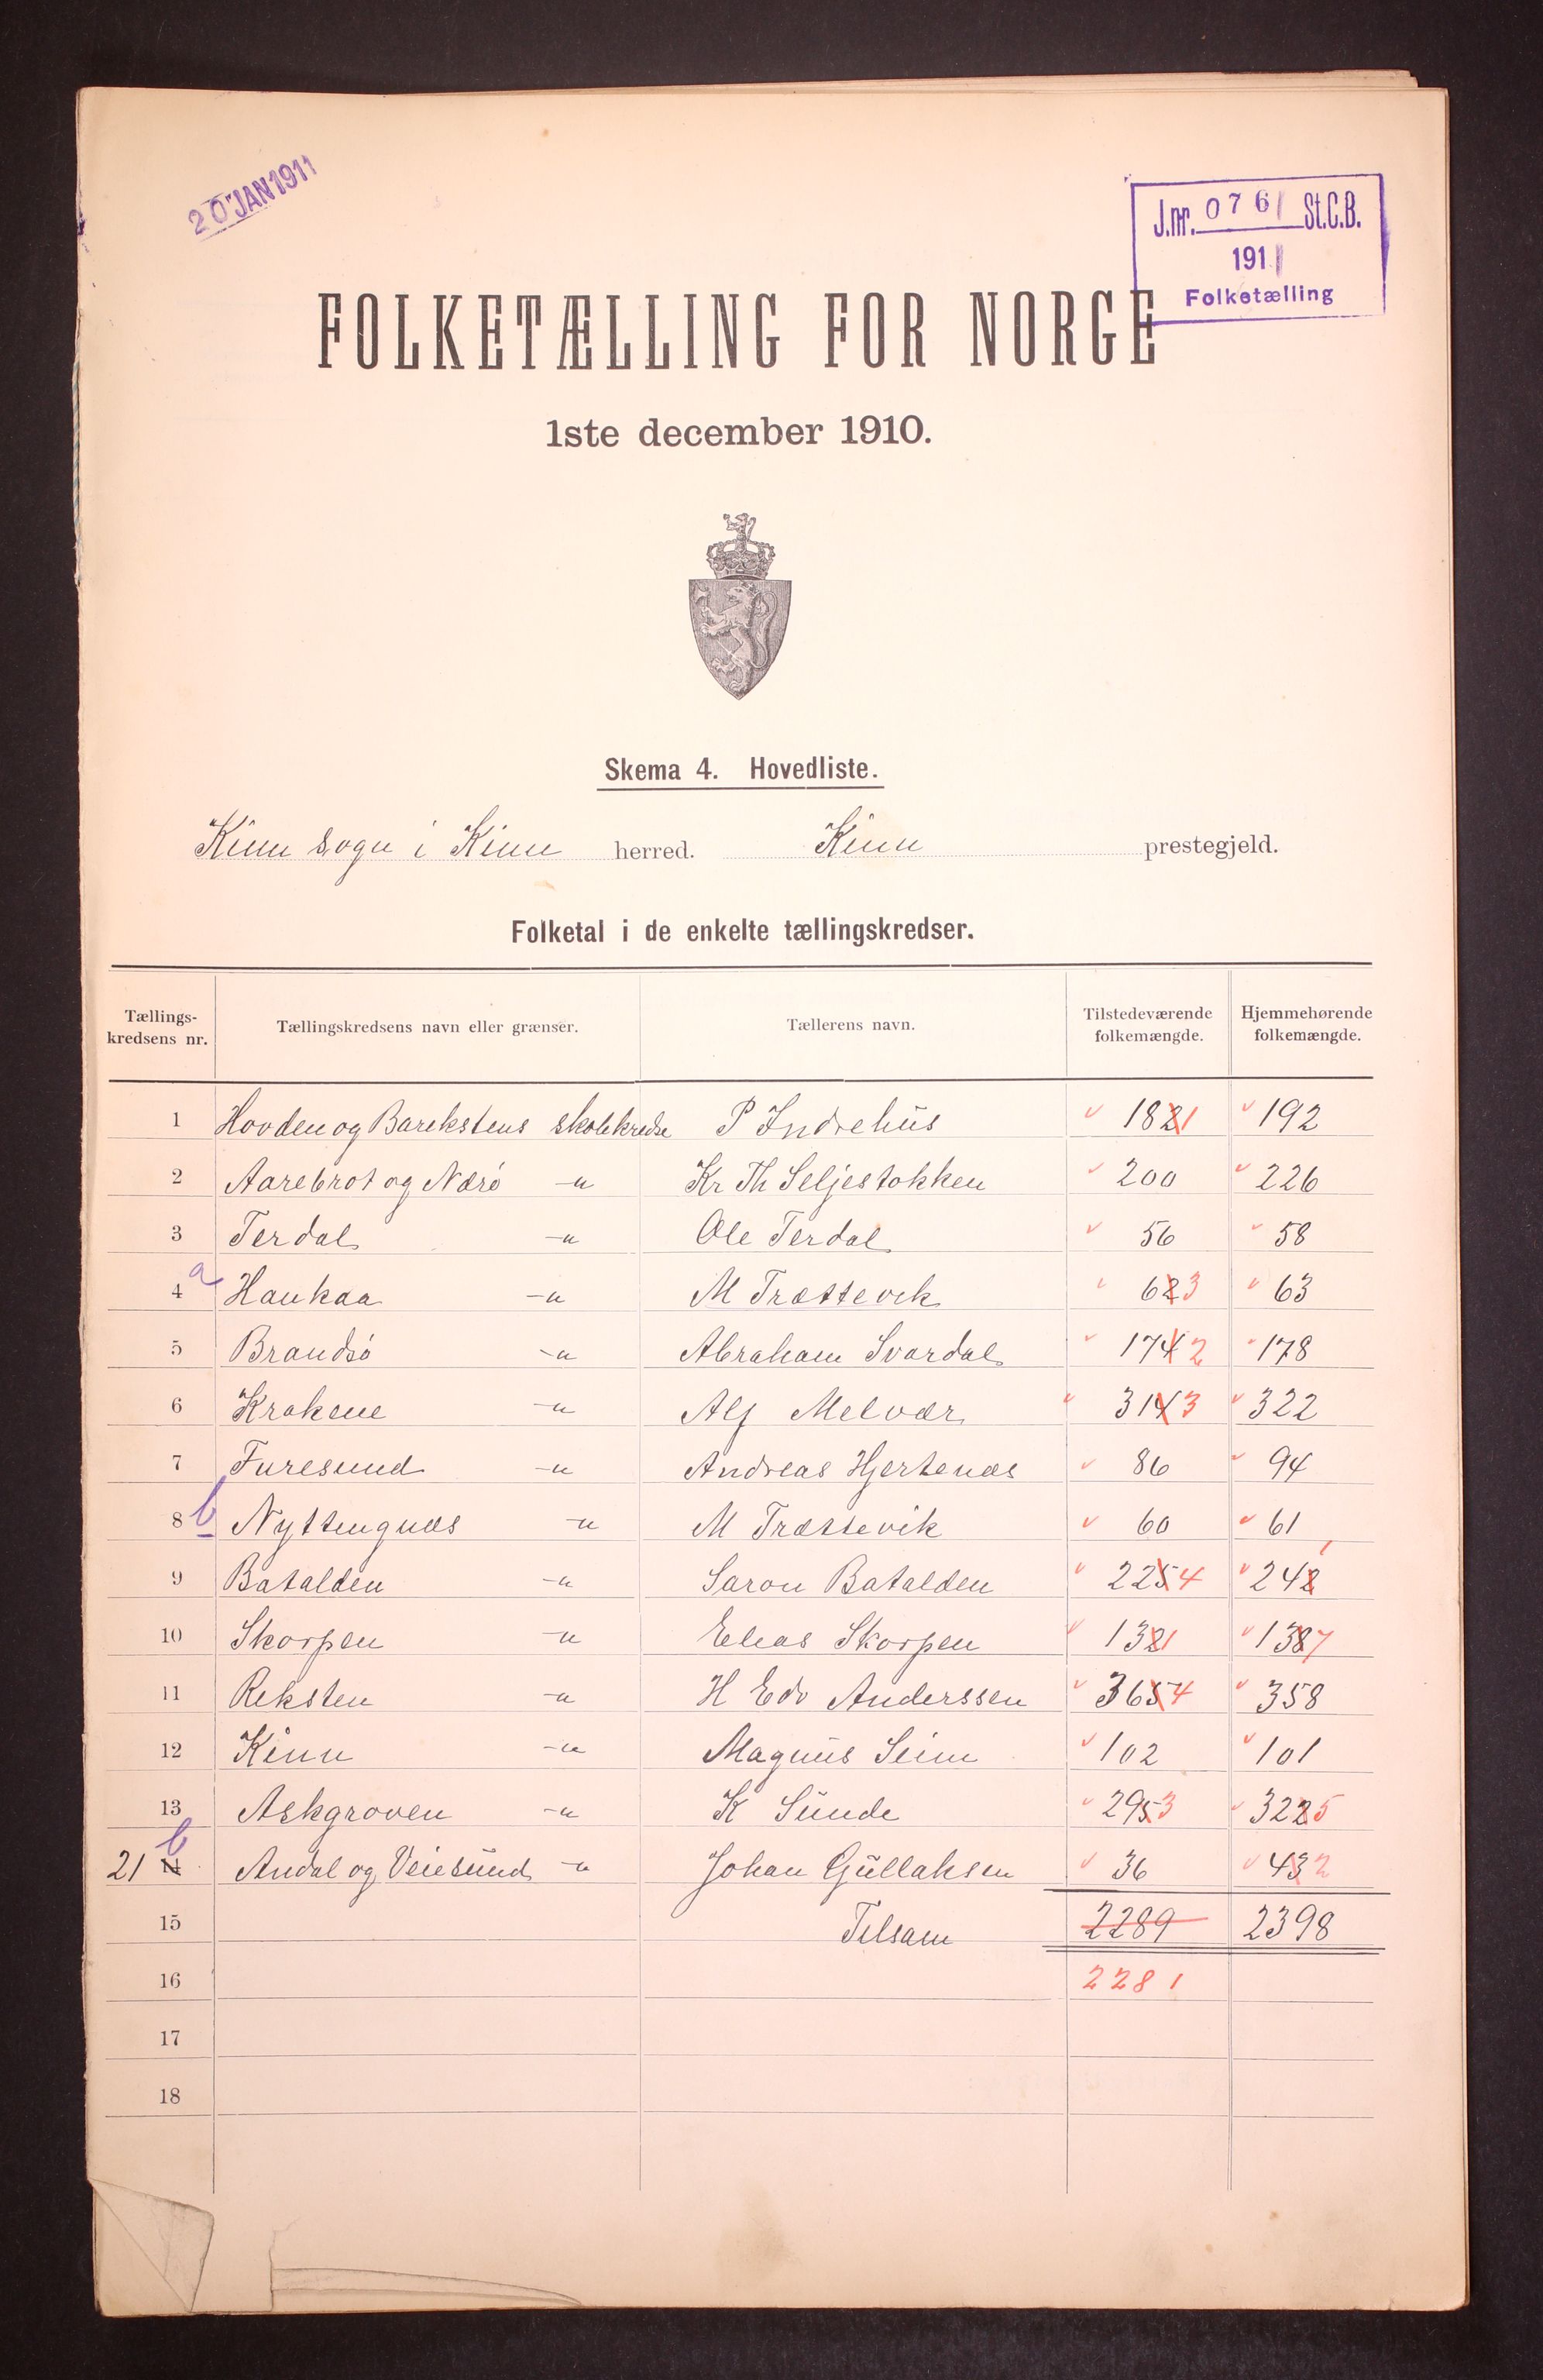 20 JAN 1911
J.nr. 0761 St.C.B.
1911
Folketælling
FOLKETÆLLING FOR NORGE
1ste december 1910.
Skema 4. Hovedliste.
Kinn sogn i Kinn herred. Kinn prestegjeld.
Folketal i de enkelte tællingskredser.
Tællings-kredsens nr. Tællingskredsens navn eller grænser. Tællerens navn. Tilstedeværende folkemængde. Hjemmehørende folkemængde.
1 Hovden og Barekstens skolekredse P Indrehus 1821 192
2 Aarebrot og Nærö -"- Kr Th Seljestokken 200 226
3 Terdal -"- Ole Terdal 56 58
4 a Haukaa -"- M Trættevik 623 63
5 Brandsö -"- Abraham Svardal 1742 178
6 Krokene -"- Alf Melvær 3143 322
7 Furesund -"- Andreas Hjertenæs 86 94
8 b Nyttingnæs -"- M Trættevik 60 61
9 Batalden -"- Saron Batalden 2254 2421
10 Skorpen -"- Elias Skorpen 1321 1387
11 Reksten -"- H Edv Anderssen 3654 358
12 Kinn -"- Magnus Seim 102 101
13 Askgroven -"- K Sunde 2953 3225
21 14 b Andal og Veiesund -"- Johan Gullaksen 36 432
15 Tilsam 2289 2398
16 2281
17
18